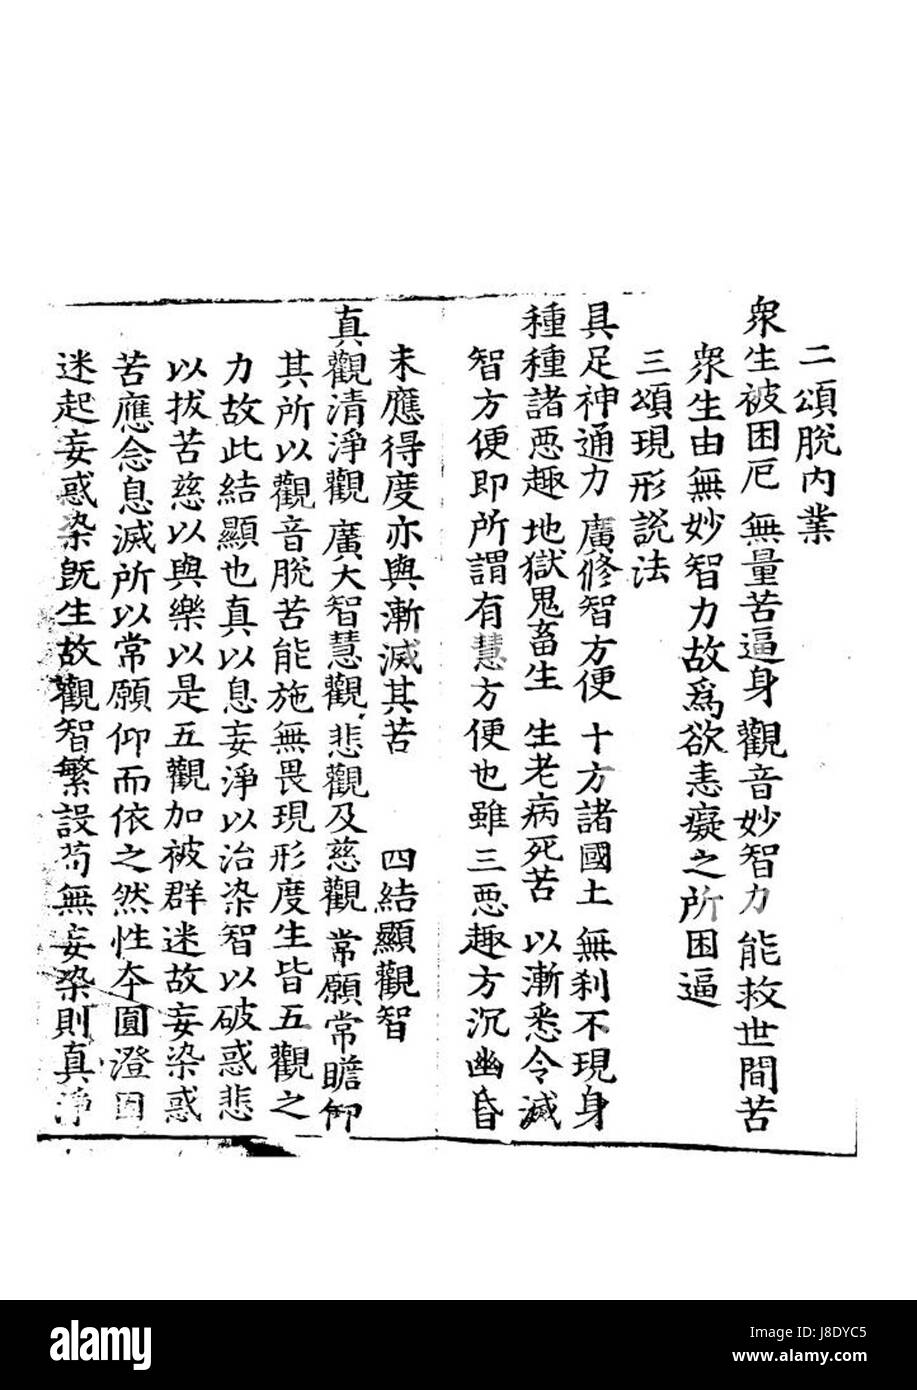 二頌脫內業
衆生被困厄 無量苦逼身 觀音妙智力 能救世間苦
衆生由無妙智力故爲欲恚癡之所困逼
三頌現形說法
具足神通力 廣修智方便 十方諸國土 無刹不現身
種種諸惡趣 地獄鬼畜生 生老病死苦 以漸悉令滅
智方便即所謂有慧方便也雖三惡趣方沉幽昏
未應得度亦與漸滅其苦 四結顯觀智
真觀清淨觀 廣大智慧觀 悲觀及慈觀 常願常瞻仰
其所以觀音脫苦能施無畏現形度生皆五觀之
力故此結顯也真以息妄淨以治染智以破惑悲
以拔苦慈以與樂以是五觀加被群迷故妄染惑
苦應念息滅所以常願仰而依之然性本圓澄
迷起妄惑染旣生故觀智繁設苟無妄染則真淨
alamy
Image ID: J8DYC5
www.alamy.com